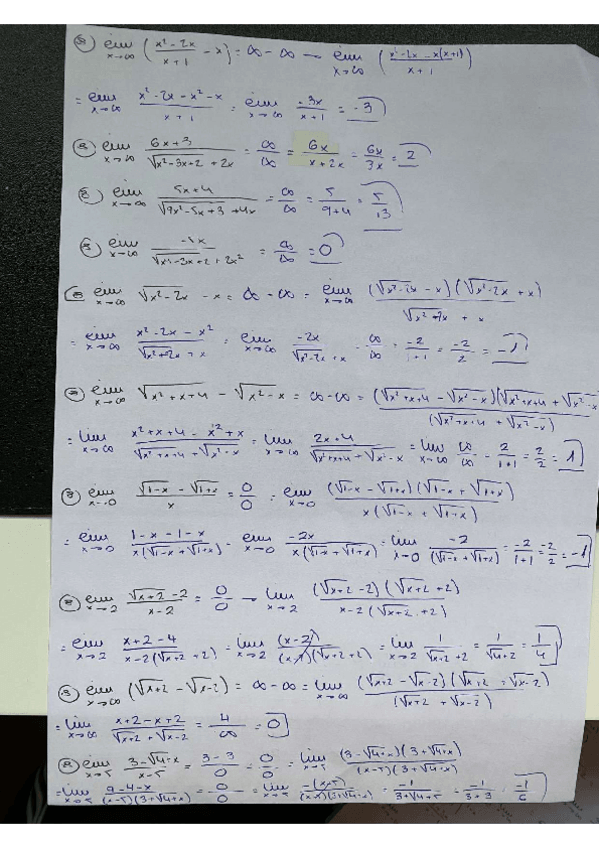 lim x→∞ (x²-2x / x+1 - x) = ∞ - ∞ → lim x→∞ (x²-2x-x(x+1) / x+1)
= lim x→∞ x²-2x-x²-x / x+1 = lim x→∞ -3x / x+1 = -3
lim x→∞ 6x+3 / √x²-3x+2 + 2x = ∞/∞ = 6x / x+2x = 6x/3x = 2
lim x→∞ 5x+4 / √9x²-5x+3 + 4x = ∞/∞ = 5 / 9+4 = 5/13
lim x→∞ -5x / √x²-3x+2+2x² = ∞/∞ = 0
lim x→∞ √x²-2x - x = ∞ - ∞ = lim x→∞ (√x²-2x - x)(√x²-2x + x) / √x²-2x + x
= lim x→∞ x²-2x-x² / √x²-2x + x = lim x→∞ -2x / √x²-2x + x = ∞/∞ = -2 / 1+1 = -2/2 = -1
lim x→∞ √x²+x+4 - √x²-x = ∞-∞ = (√x²+x+4 - √x²-x)(√x²+x+4 + √x²-x / (√x²+x+4 + √x²-x)
= lim x→∞ x²+x+4 - x²+x / √x²+x+4 + √x²-x = lim x→∞ 2x+4 / √x²+x+4 + √x²-x = lim x→∞ ∞/∞ = 2 / 1+1 = 2/2 = 1
lim x→0 √1-x - √1+x / x = 0/0 = lim x→0 (√1-x - √1+x)(√1-x + √1+x) / x(√1-x + √1+x)
= lim x→0 1-x-1-x / x(√1-x + √1+x) = lim x→0 -2x / x(√1-x + √1+x) = lim x→0 -2 / (√1-x + √1+x) = -2 / 1+1 = -2/2 = -1
lim x→2 √x+2 - 2 / x-2 = 0/0 → lim x→2 (√x+2 - 2)(√x+2 + 2) / x-2(√x+2 + 2)
= lim x→2 x+2-4 / x-2(√x+2 + 2) = lim x→2 (x-2) / (x-2)(√x+2 + 2) = lim x→2 1 / √x+2 + 2 = 1 / √4+2 = 1/4
lim x→∞ (√x+2 - √x-2) = ∞-∞ = lim x→∞ (√x+2 - √x-2)(√x+2 + √x-2) / (√x+2 + √x-2)
= lim x→∞ x+2-x+2 / √x+2 + √x-2 = 4/∞ = 0
lim x→5 3-√4+x / x-5 = 3-3 / 0 = 0/0 = lim x→5 (3-√4+x)(3+√4+x) / (x-5)(3+√4+x)
= lim x→5 9-4-x / (x-5)(3+√4+x) = 0/0 = lim x→5 -(x-5) / (x-5)(3+√4+x) = -1 / 3+√4+5 = -1 / 3+3 = -1/6